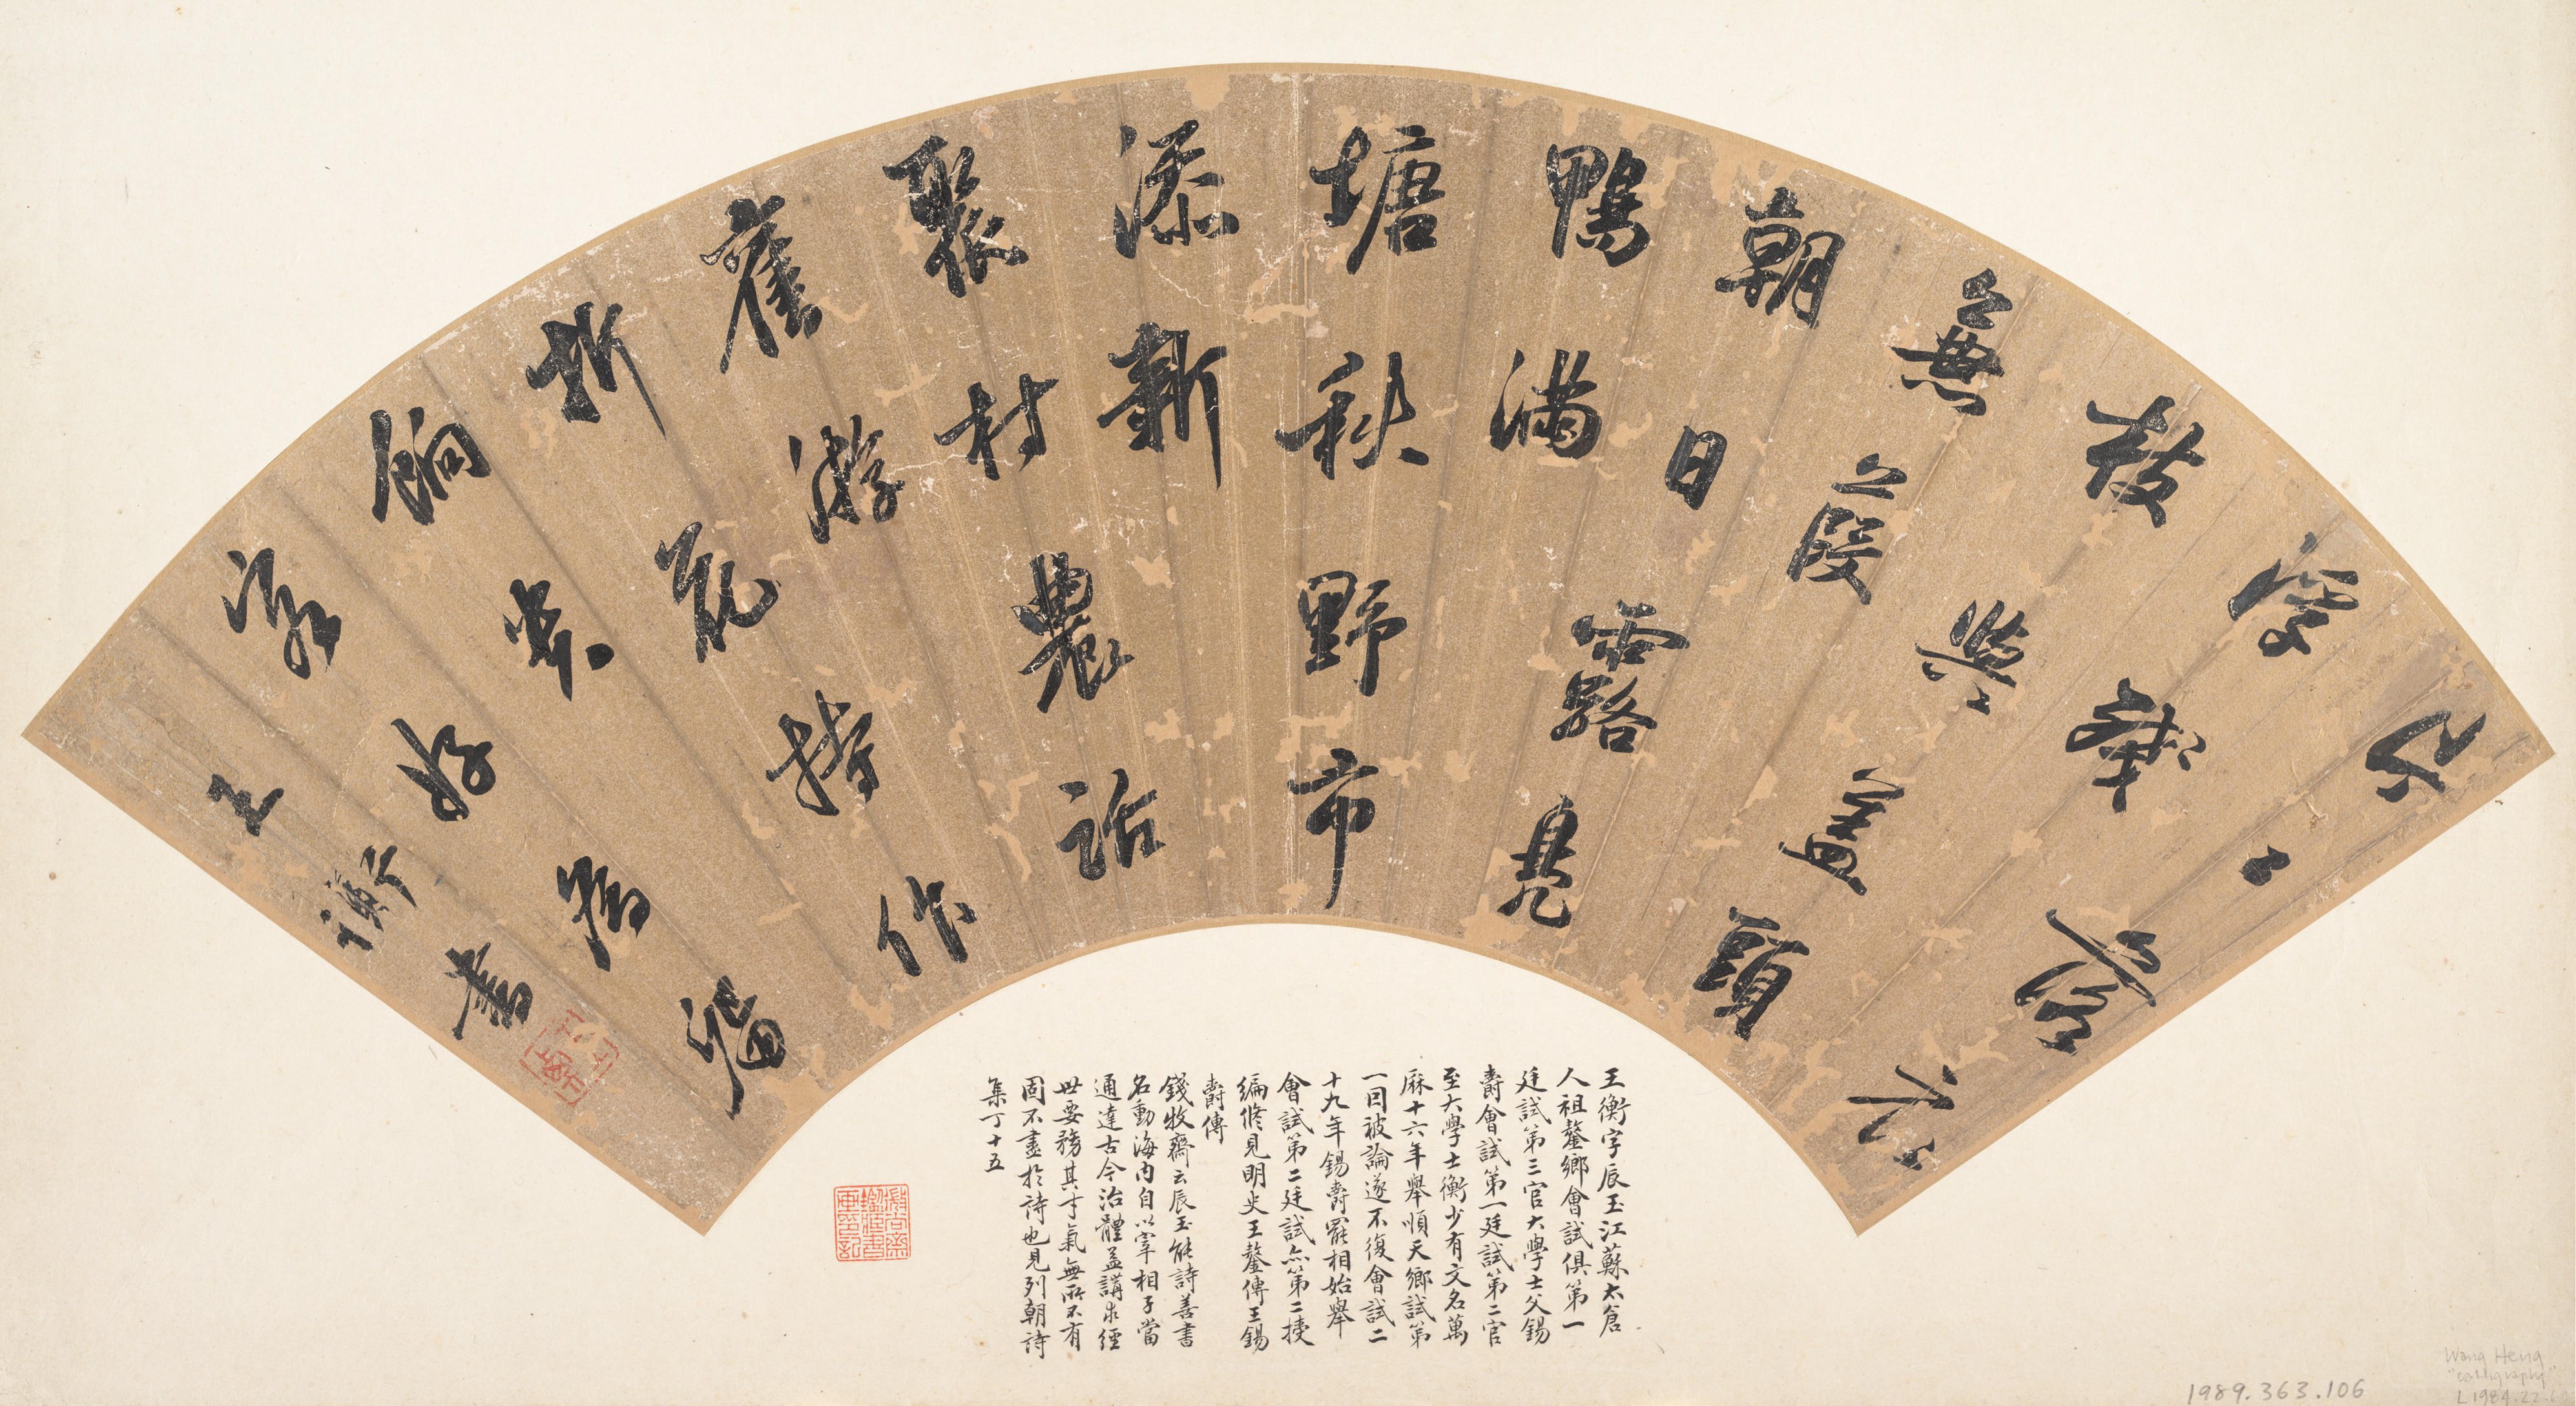 枝與蓋頭
無
朝日露晃
鴨滿
塘秋野市
添新
聚村農話
舊游
折花持作
餉
王衡書
王衡字辰玉江蘇太倉
人祖鏊鄉會試俱第一
廷試第三官大學士父錫
爵會試第一廷試第二官
至大學士衡少有文名萬
厤十六年舉順天鄉試第
一因被論遂不復會試二
十九年錫爵罷相始舉
會試第二廷試亦第二授
編修見明史王鏊傳王錫
爵傳
錢牧齋云辰玉能詩善書
名動海內自以宰相子當
通達古今治體益講求經
世要務其才氣無所不有
固不盡於詩也見列朝詩
集丁十五
1989.363.106
Wang Heng
"calligraphy"